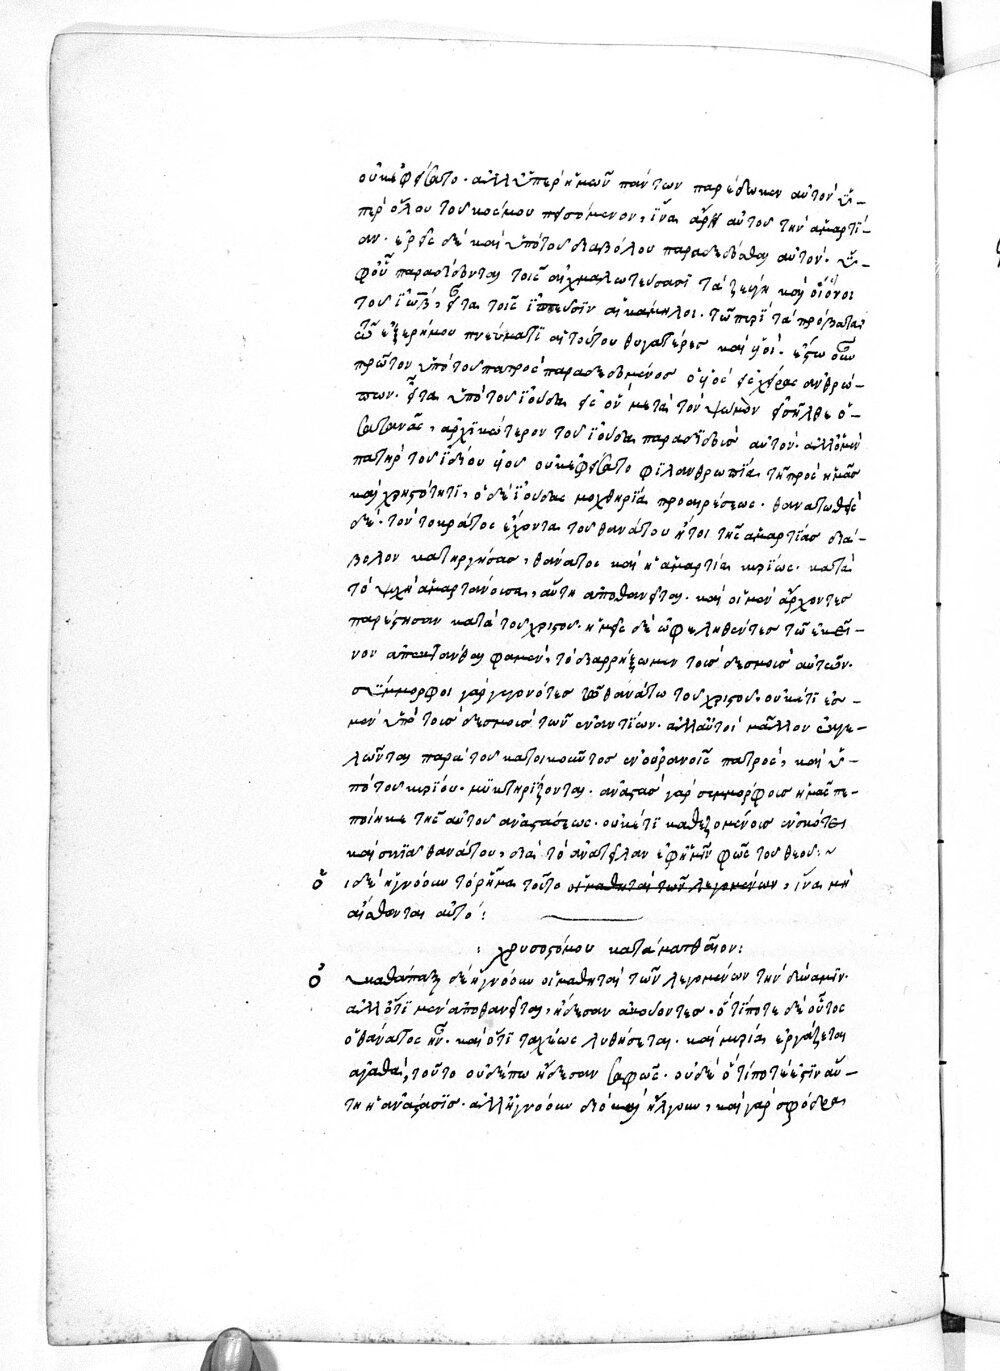 οὐκ ἐφείσατο. ἀλλ' ὑπὲρ ἡμῶν πάντων παρέδωκεν αὐτὸν ὑ-
πὲρ ὅλου τοῦ κόσμου, ἵνα ἄρῃ αὐτοῦ τὴν ἁμαρτί-
αν. δὲ καὶ ὑπὸ τοῦ διαβόλου παραδεδόσθαι αὐτόν. ὑ-
φ' οὗ παραδίδονται τοῖς αἰχμαλωτεύσασι τὰ ζεύγη καὶ οἱ ὄνοι
τοῦ ἰώβ, τοῖς ἱππεῦσιν αἱ κάμηλοι. τὰ πρόβατα
πνεύματι αἱ τούτου θυγατέρες καὶ υἱοί. ἔστω οὖν
πρῶτον ὑπὸ τοῦ πατρὸς παραδεδομένος ὁ υἱὸς εἰς χεῖρας ἀνθρώ-
πων. εἶτα ὑπὸ τοῦ ἰούδα εἰς ὃν μετὰ τὸν ψωμὸν εἰσῆλθε ὁ
σατανᾶς, ἀρχικώτερον τοῦ ἰούδα παραδιδοὺς αὐτόν. ἀλλ' ὁ μὲν
πατὴρ τοῦ ἰδίου υἱοῦ οὐκ ἐφείσατο φιλανθρωπία τῆ πρὸς ἡμᾶς
καὶ χρηστότητι, ὁ δὲ ἰούδας μοχθηρία προαιρέσεως. θανατωθεὶς
δὲ. τὸν τὸ κράτος ἔχοντα τοῦ θανάτου ἤτοι τῆς ἁμαρτίας διά-
βολον κατήργησας, θάνατος καὶ ἡ ἁμαρτία κυρίως. κατὰ
τὸ ψυχὴ ἁμαρτάνουσα, αὕτη ἀποθανεῖται. καὶ οἱ μὲν ἄρχοντες
παρέστησαν κατὰ τοῦ χριστοῦ. ἡμεῖς δὲ ὠφεληθέντες τῶ ἐκεῖ-
νον ἀπεκτάνθαι φαμὲν, τὸ διαρρήξωμεν τοὺς δεσμοὺς αὐτῶν.
σύμμορφοι γὰρ γεγονότες τῶ θανάτω τοῦ χριστοῦ, οὐκέτι ἐσ-
μὲν ὑπὸ τοὺς δεσμοὺς τῶν ἐναντίων. ἀλλ' αὐτοὶ μᾶλλον ἐκγε-
λῶνται παρὰ τοῦ κατοικοῦντος ἐν οὐρανοῖς πατρὸς, καὶ ὑ-
πὸ τοῦ κυρίου. μυκτηρίζονται. ἀναστὰς γὰρ συμμόρφους ἡμᾶς πε-
ποίηκε τῆς αὐτοῦ ἀναστάσεως. οὐκέτι καθεζομένους ἐν σκότει
καὶ σκιᾶ θανάτου, διὰ τὸ ἀνατεῖλαι ἐφ' ἡμῖν φῶς τοῦ θεοῦ:~
ὁ ι δὲ ἠγνόουν τὸ ῥῆμα τοῦτο οἱ μαθηταὶ τῶν λεγομένων, ἵνα μὴ
αἴσθωνται αὐτό:
: χρυσοστόμου κατὰ ματθαῖον:
ὁ υ καθάπαξ δὲ ἠγνόουν οἱ μαθηταὶ τῶν λεγομένων τὴν δύναμιν.
ἀλλ' ὅτι μὲν ἀποθανεῖται, ἤδεσαν ἀκούοντες. ὅ τί ποτε δὲ οὗτος
ὁ θάνατος ἦν. καὶ ὅτι ταχέως λυθήσεται. καὶ μυρία ἐργάζεται
ἀγαθὰ, τοῦτο οὐδέπω ἤδεσαν σαφῶς. οὐδὲ ὅ τί ποτέ ἐστιν αὕ-
τη ἡ ἀνάστασις. ἀλλ' ἠγνόουν διὸ καὶ ἤλγουν, καὶ γὰρ σφόδρα